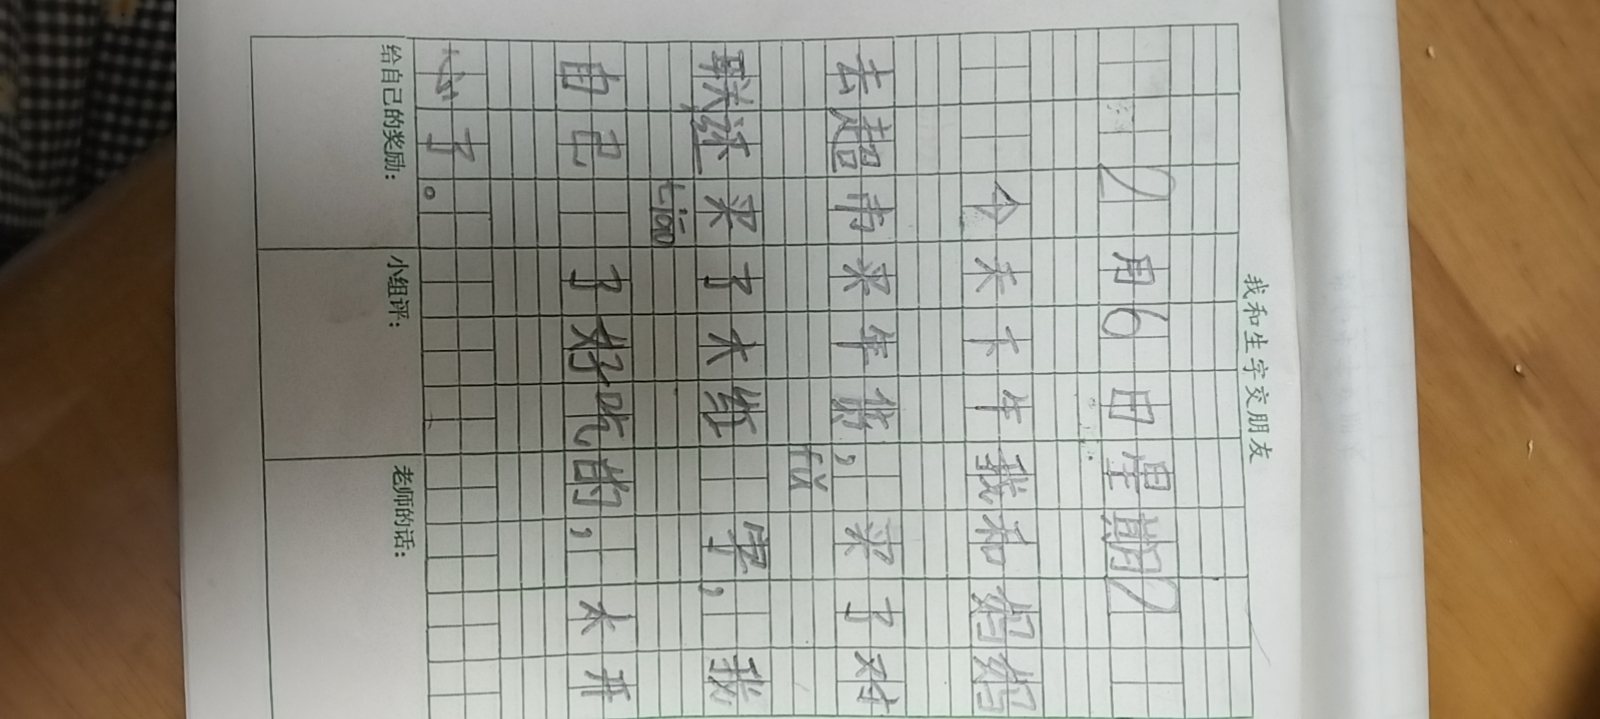 我和生字交朋友
2月6日星期2
今天下午我和妈妈
去超市买年货，买了对
fú
联还买了大红 字，我
tiāo
自己 了好吃的，太开
心了。
给自己的奖励： 小组评： 老师的话：